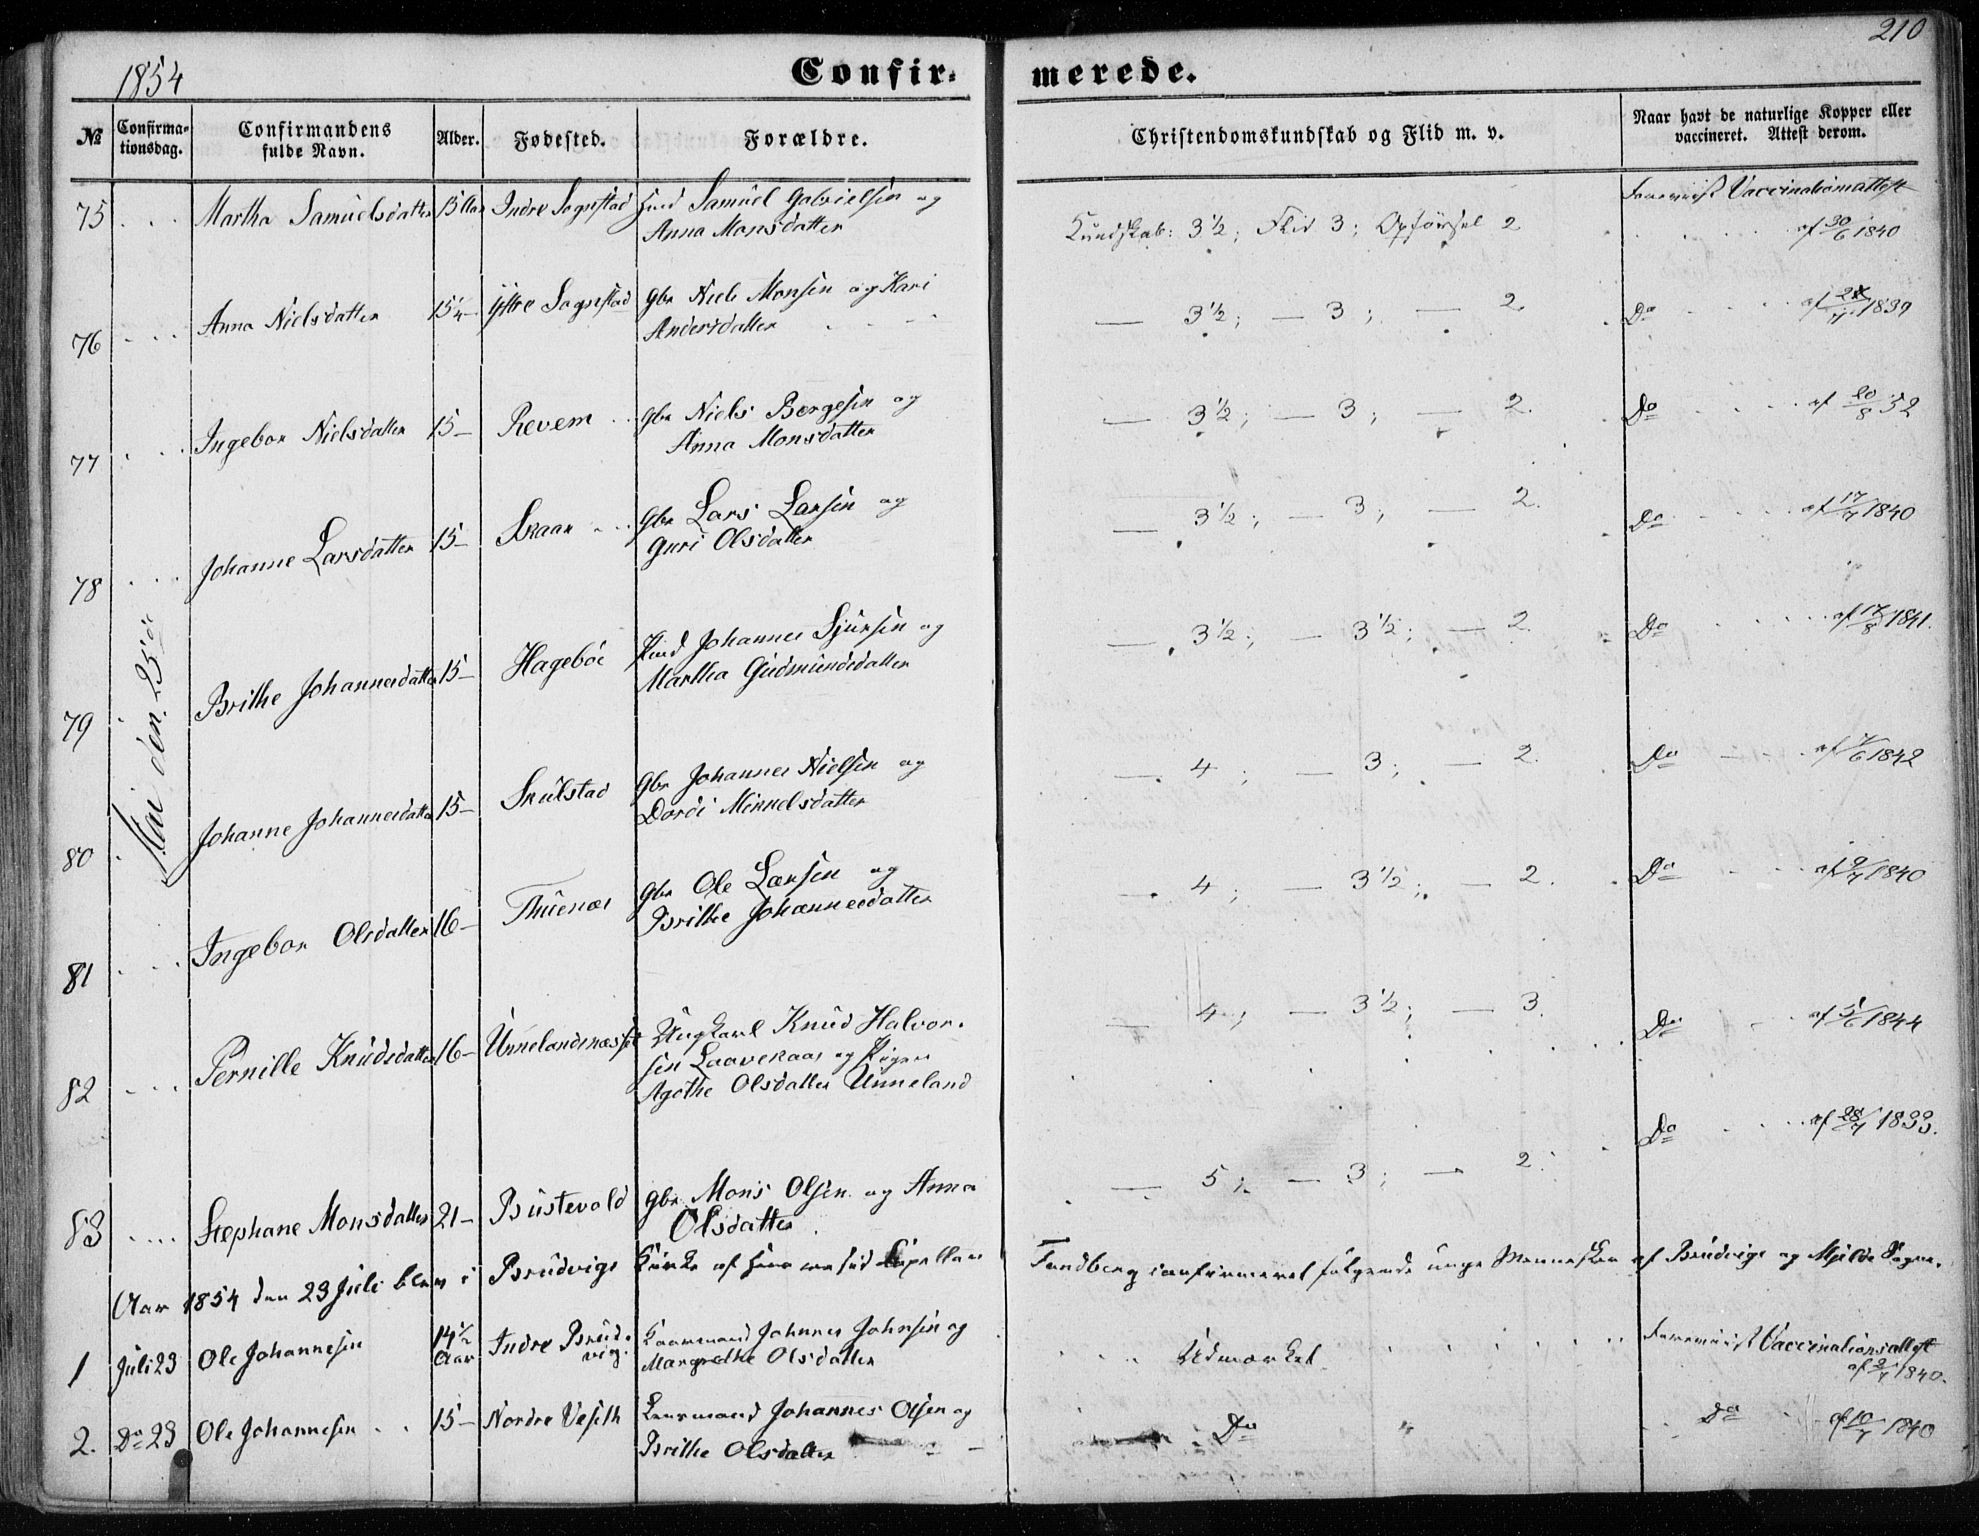 1854
Confir-
merede.
210
№
Confirma-
tionsdag.
Confirmandens
fulde Navn.
Alder.
Fødested.
Forældre.
Christendomskundskab og Flid m. v.
Naar havt de naturlige Kopper eller
vaccineret. Attest derom.
Mai den 25de
75 Martha Samuelsdatter 15 Indre Sognstad Samuel Gabrielsen og
Anna Monsdatter
Kundskab: 3½; Flid 3; Opførsel 2
Foreviist Vaccinationsattest
af 30/6 1840
76 Anna Nielsdatter 15¼ Ystre Sognstad Gbr Niels Monsen og Kari
Andersdatter
— 3½; — 3; — 2.
Do af 1839
77 Ingebor Nielsdatter 15 — Revem Gbr Niels Borgesen og
Anna Monsdatter
— 3½; — 3; — 2.
Do af 20/8 52
78 Johanne Larsdatter 15 — Skaar Gbr Lars Larsen og
Guri Olsdatter
— 3½; — 3; — 2.
Do af 17/7 1840
79 Brithe Johannesdatter 15 — Hagebøe Johannes Sjursen og
Martha Gudmundsdatter
— 3½; — 3½; — 2.
Do af 17/8 1841.
80 Johanne Johannesdatter 15 — Skulstad Gbr Johannes Nielsen og
Dordi Mikkelsdatter
— 4; — 3; — 2.
Do af 7/6 1842
81 Ingebor Olsdatter 16 — Thuenæs Gbr Ole Larsen og
Brithe Johannesdatter
— 4; — 3½; — 2.
Do af 9/7 1840
82 Pernille Knudsdatter 16 — Unnelandsnæsset Ungkarl Knud Halvor-
sen og Pigen
Agathe Olsdatter Unneland
— 4; — 3½; — 3.
Do af 5/6 1844
83 Stephane Monsdatter 21 — Bustevold Gbr Mons Olsen og Anna
Olsdatter
— 5; — 3; — 2.
Do af 28/7 1833.
Aar 1854 den 23 Juli blev i Brudvigs Kirke af Capellan
confirmeret følgende unge Mennesker af Brudvigs og Mjelde Sogne.
1 Juli 23 Ole Johannesen 14½
Aar Indre Brud-
vig. Johannes Johnsen og
Margrethe Olsdatter
Udmærket
Foreviist Vaccinationsattest
af 2/7 1840.
2. Do 23 Ole Johannesen 15 — Nordre Johannes Olsen og
Brithe Olsdatter
Do "
Do af 10/7 1840